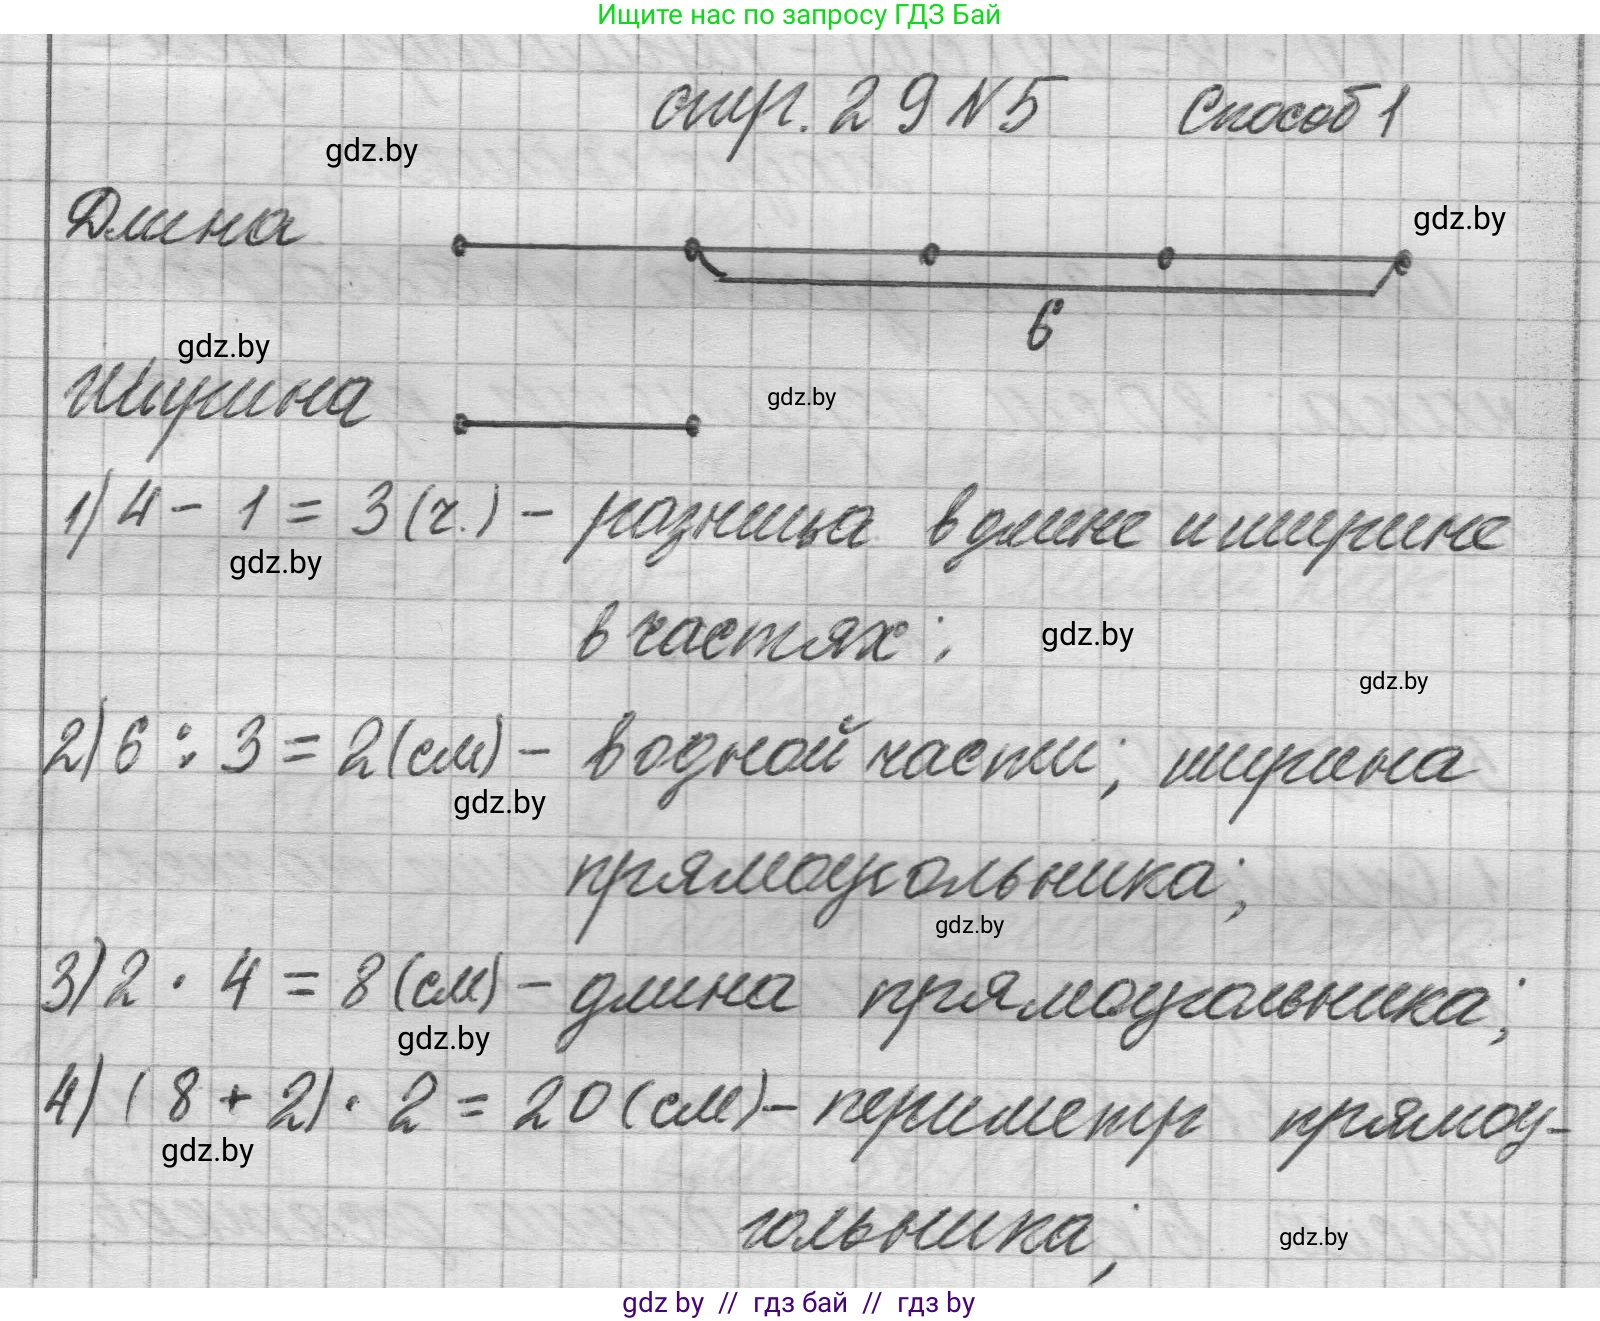 Ищите нас по запросу ГДЗ Бай
стр. 29 N 5 Способ 1
gdz.by
Длина
gdz.by
6
gdz.by
Ширина
gdz.by
1) 4 - 1 = 3 (ч.) - разница в длине и ширине
gdz.by
в частях;
gdz.by
gdz.by
2) 6 : 3 = 2 (см) - в одной части; ширина
gdz.by
прямоугольника;
gdz.by
3) 2 · 4 = 8 (см) - длина прямоугольника;
gdz.by
4) (8 + 2) · 2 = 20 (см) - периметр прямоу-
gdz.by
гольника;
gdz.by
gdz by // гдз бай // гдз by